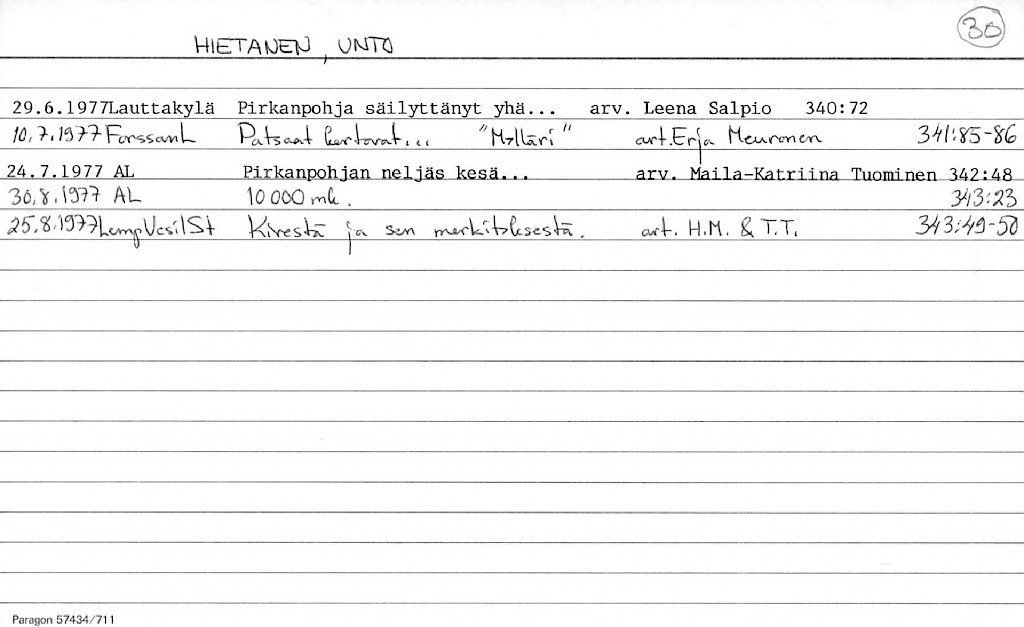 30
HIETANEN, UNTO
29.6.1977Lauttakylä Pirkanpohja säilyttänyt yhä... arv. Leena Salpio 340:72
10.7.1977 ForssanL Patsaat kertovat... "Mylläri" art.Erja Meuronen 341:85-86
24.7.1977 AL Pirkanpohjan neljäs kesä... arv. Maila-Katriina Tuominen 342:48
30.8.1977 AL 10000 mk. 343:23
25.8.1977LempVesilSt Kivestä ja sen merkityksestä. art. H.M. & T.T. 343:49-50
Paragon 57434/711